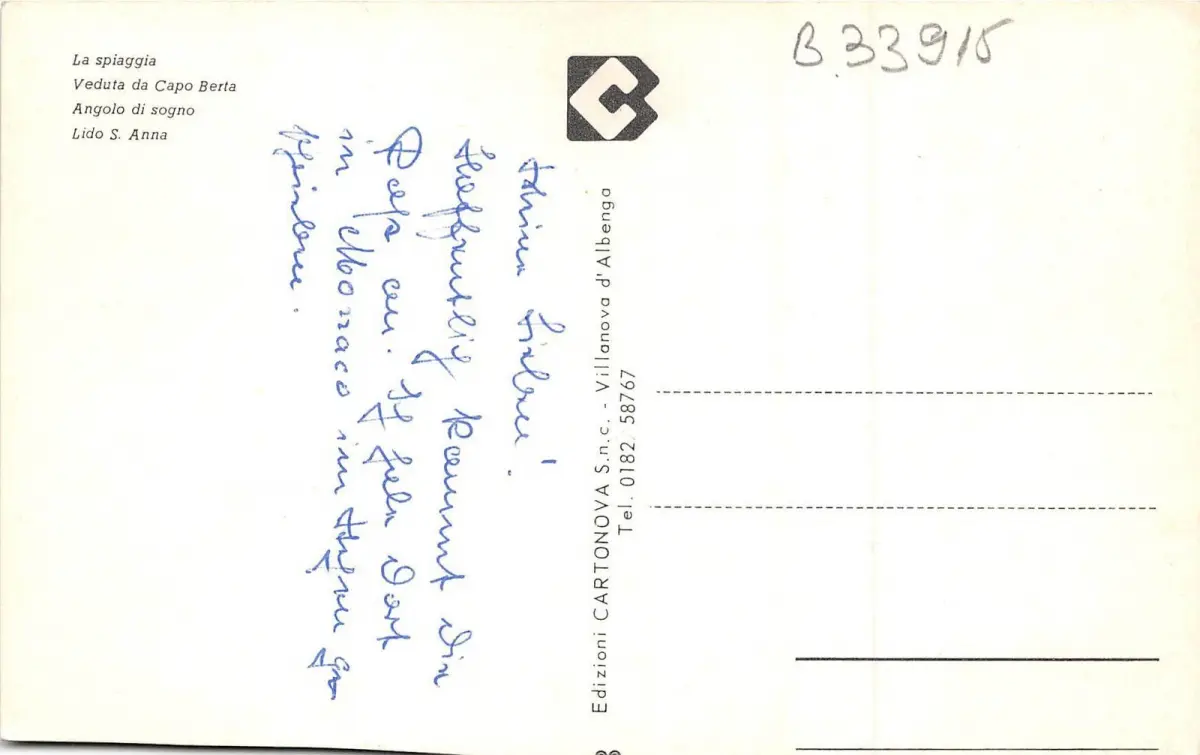 La spiaggia
Veduta da Capo Berta
Angolo di sogno
Lido S. Anna
B.33915
Meine Lieben!
Hoffentlich kommt die
an. Ich dort
in Monaco im
Edizioni CARTONOVA S.n.c. - Villanova d'Albenga
Tel. 0182. 58767